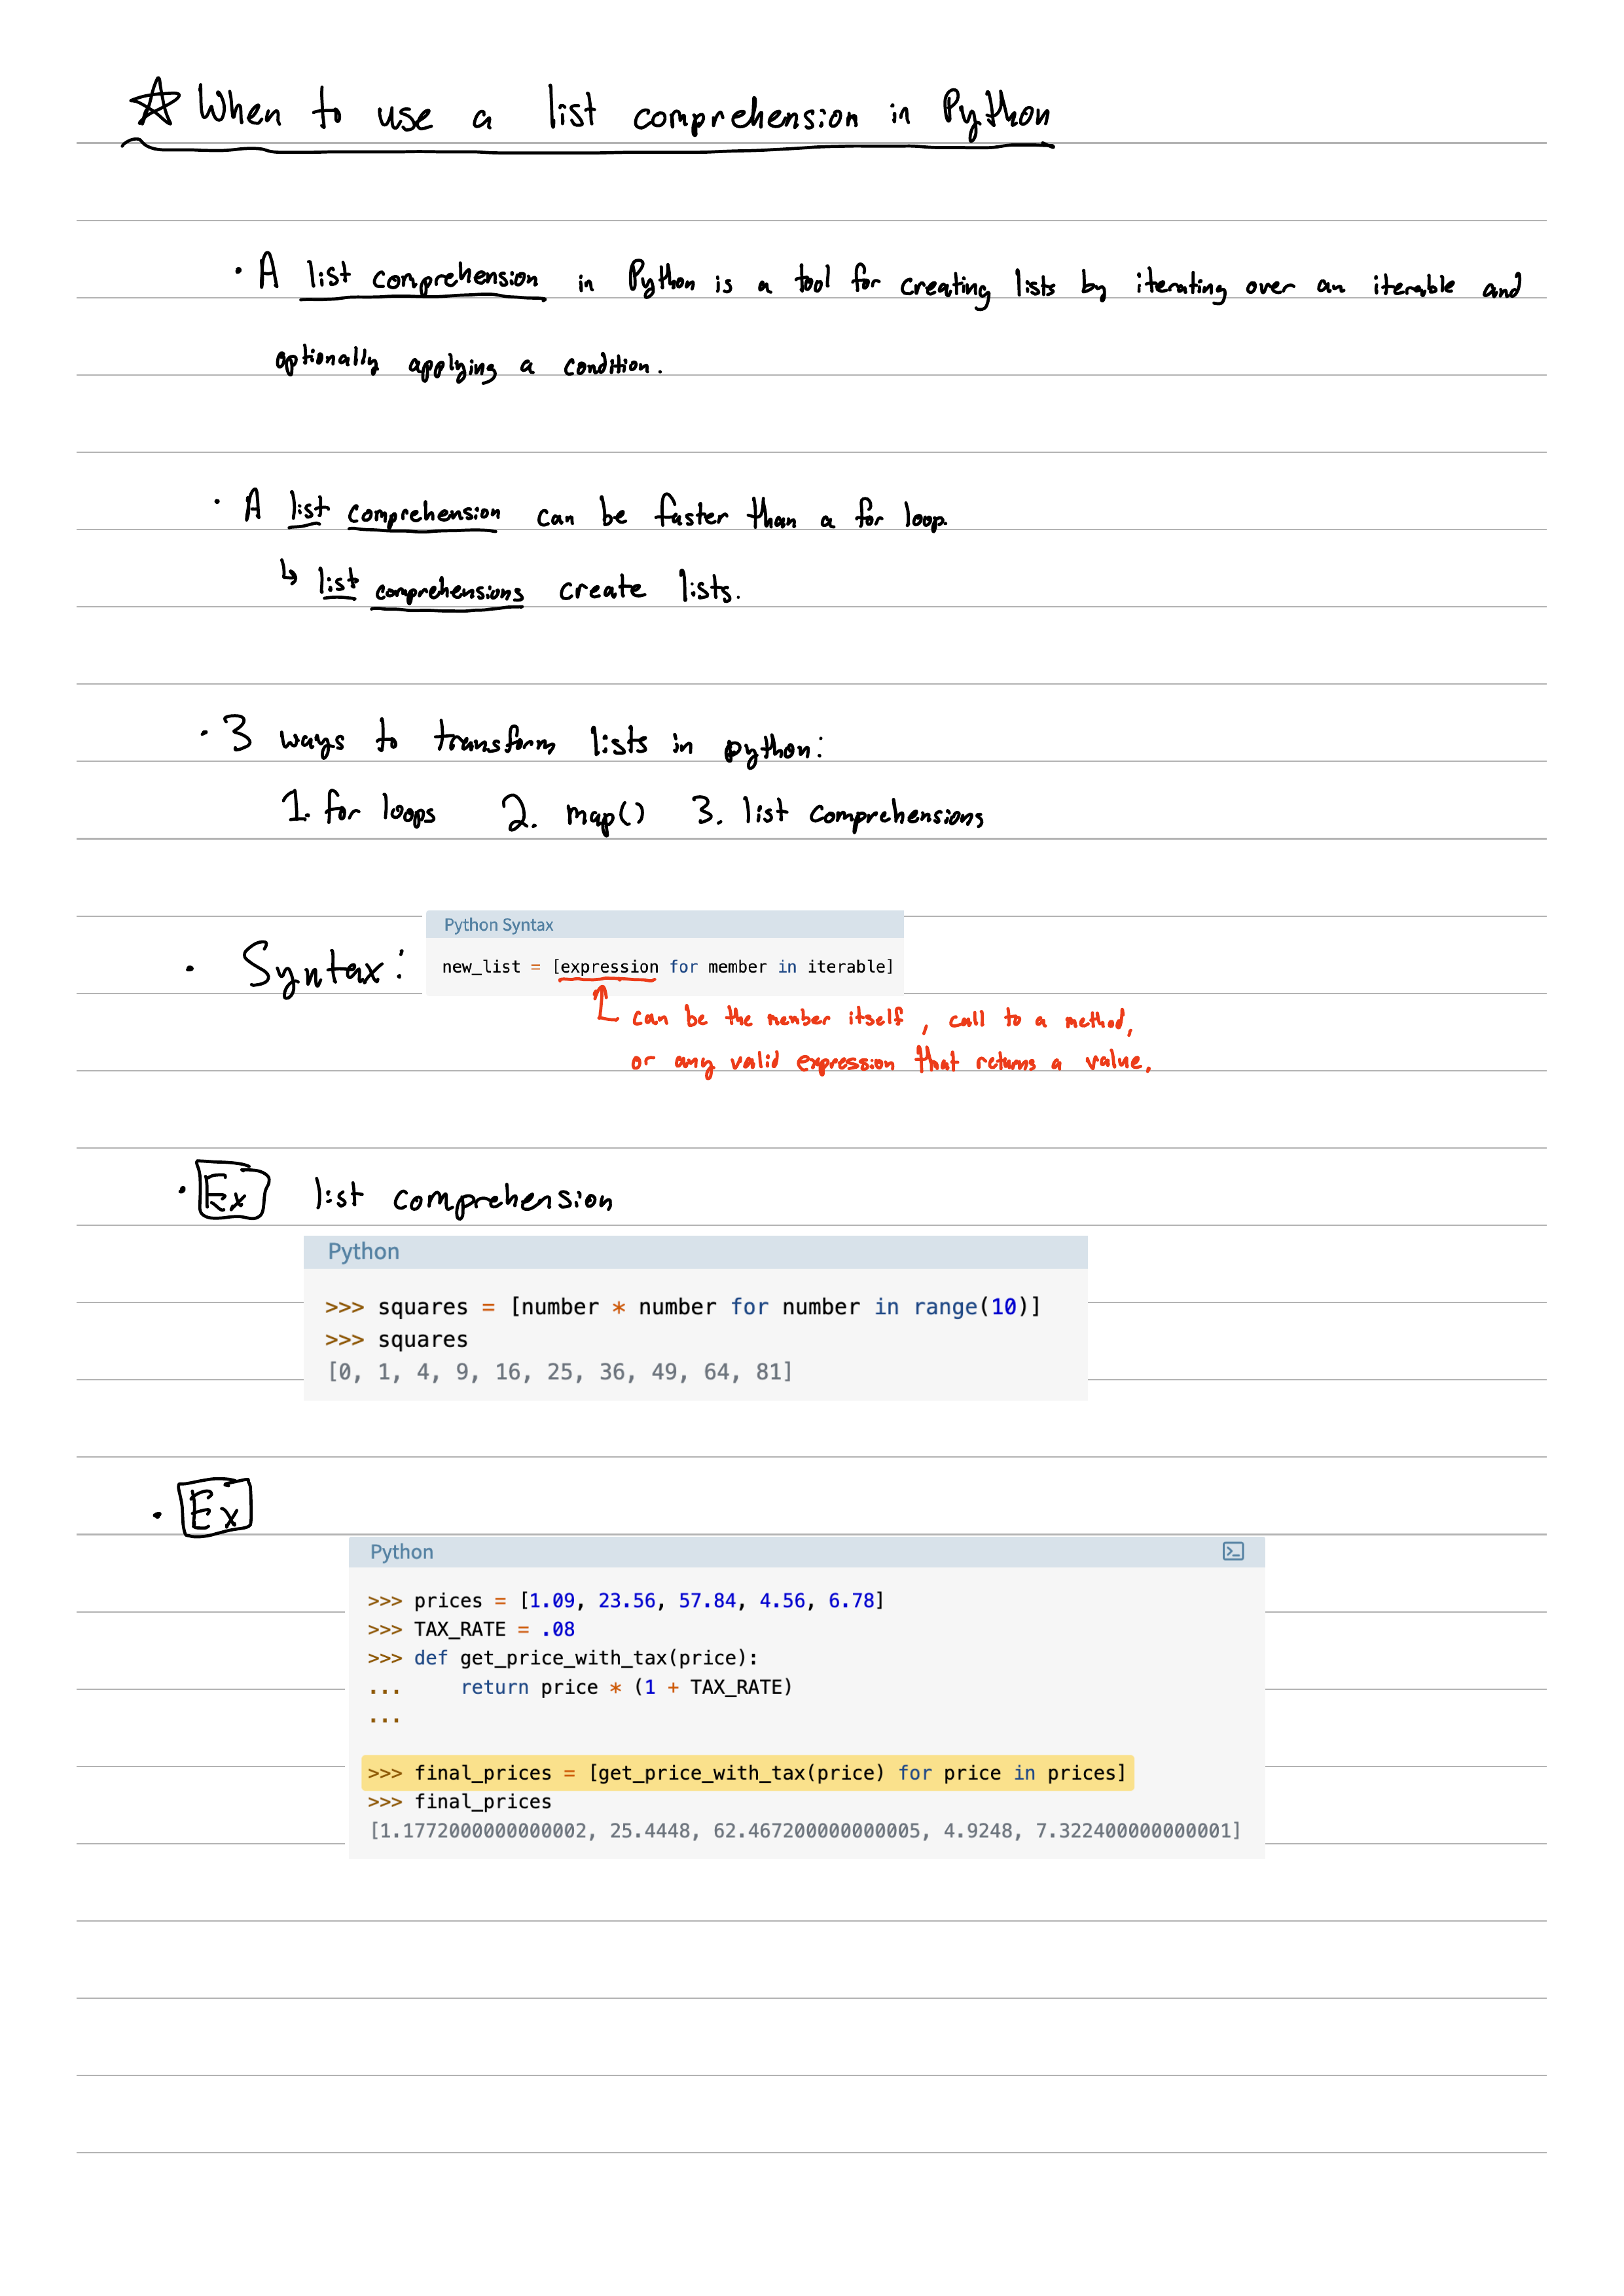 ☆ When to use a list comprehension in Python
· A list comprehension in Python is a tool for creating lists by iterating over an iterable and
optionally applying a condition.
· A list comprehension can be faster than a for loop.
↳ list comprehensions create lists.
· 3 ways to transform lists in python:
1. for loops 2. map() 3. list comprehensions
Python Syntax
· Syntax: new_list = [expression for member in iterable]
can be the member itself, call to a method,
or any valid expression that returns a value.
· Ex list comprehension
Python
>>> squares = [number * number for number in range(10)]
>>> squares
[0, 1, 4, 9, 16, 25, 36, 49, 64, 81]
· Ex
Python
>>> prices = [1.09, 23.56, 57.84, 4.56, 6.78]
>>> TAX_RATE = .08
>>> def get_price_with_tax(price):
...     return price * (1 + TAX_RATE)
...
>>> final_prices = [get_price_with_tax(price) for price in prices]
>>> final_prices
[1.1772000000000002, 25.4448, 62.467200000000005, 4.9248, 7.322400000000001]